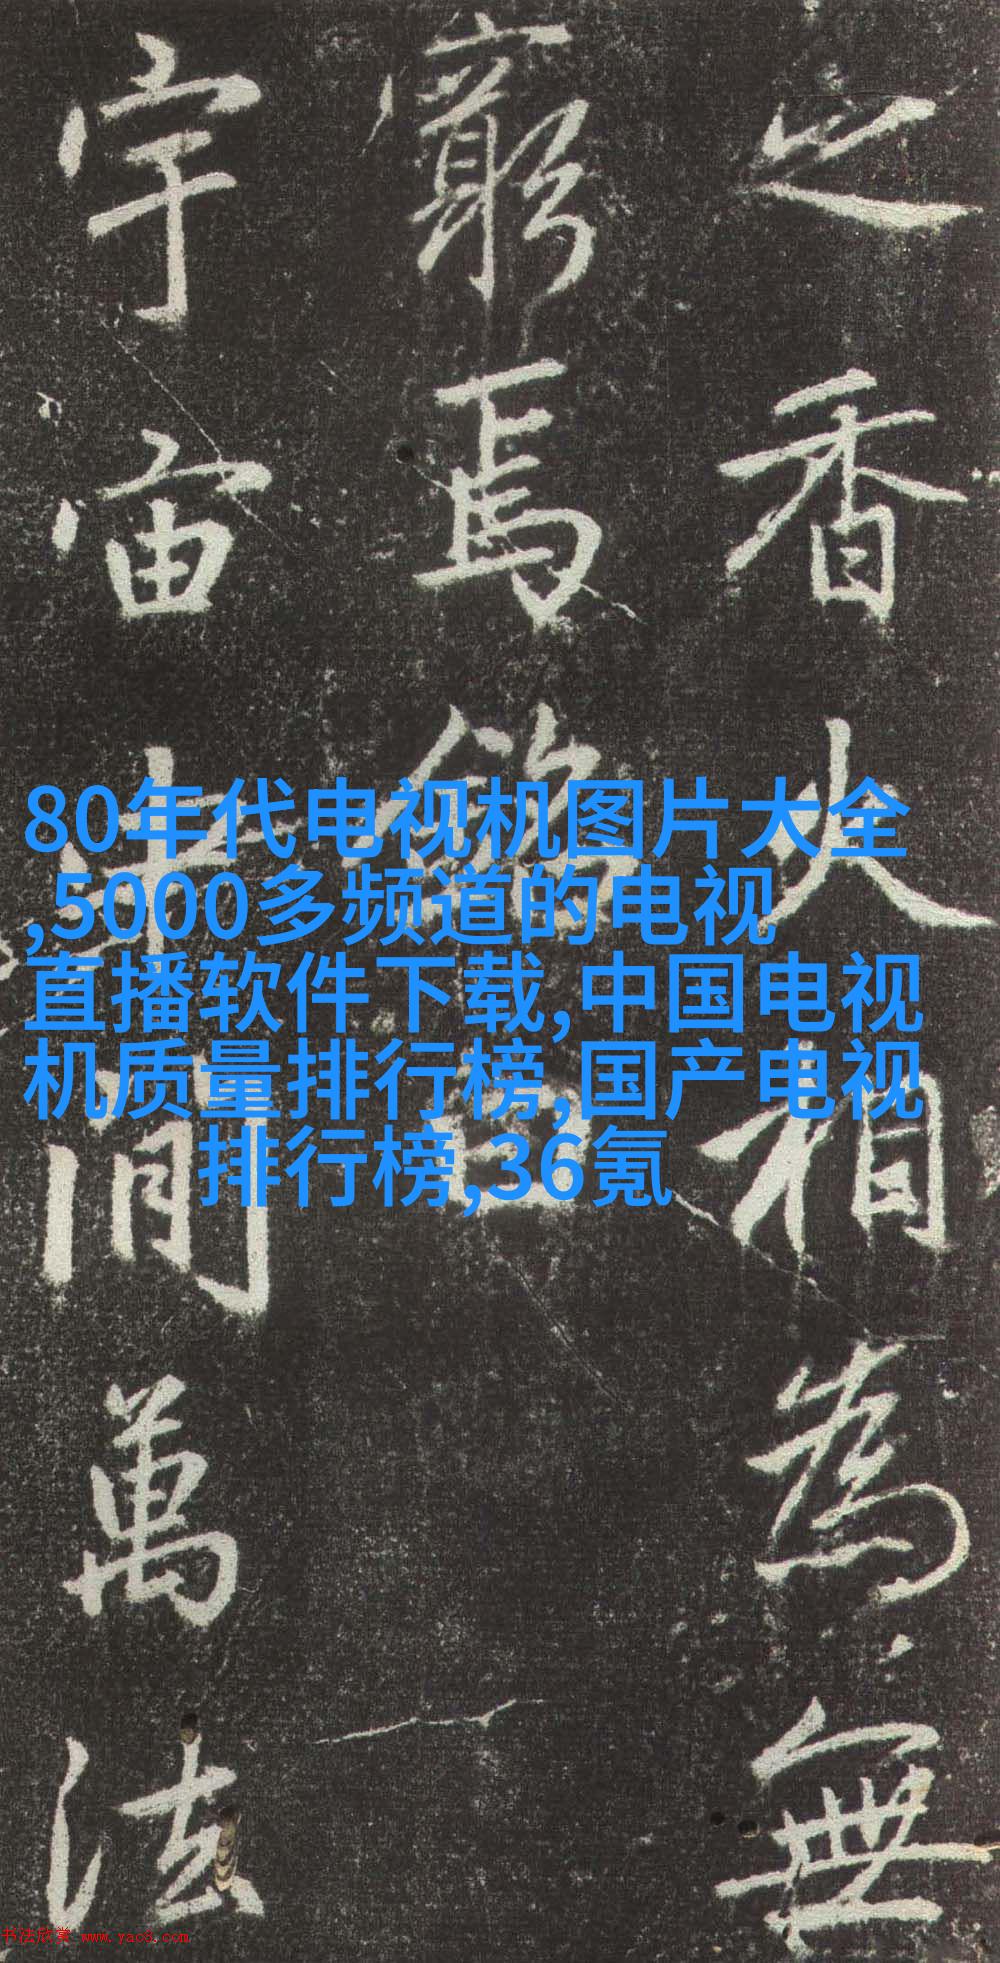 之香火相為無
窮焉銘曰
宇宙間萬法
80年代电视机图片大全
,5000多频道的电视
直播软件下载,中国电视
机质量排行榜,国产电视
排行榜,36氪
书法欣赏 www.yac8.com